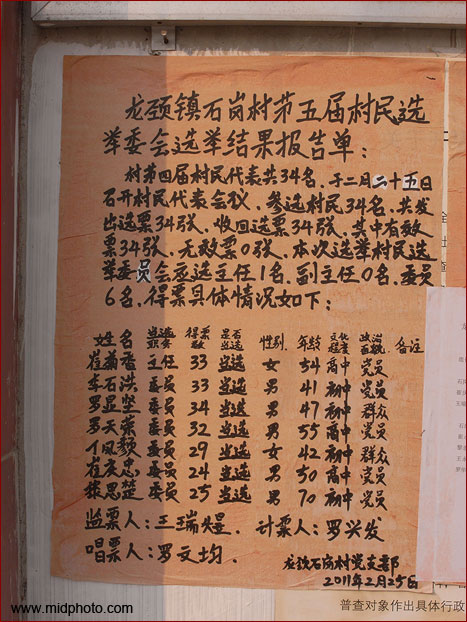 龙颈镇石岗村第五届村民选
举委会选举结果报告单：
村第四届村民代表共34名，于二月二十五日
石开村民代表会议，参选村民34名，共发
出选票34张，收回选票34张，其中有效
票34张，无效票0张，本次选举村民选
举委员会应选主任1名，副主任0名，委员
6名，得票具体情况如下：
姓名 当选职安 得票数 是否当选 性别 年龄 文化程度 政治面貌 备注
香 主任 33 当选 女 54 高中 党员
石洪 委员 33 当选 男 41 初中 党员
罗 坚 委员 34 当选 男 47 初中 群众
罗天荣 委员 32 当选 男 55 高中 党员
凤颜 委员 29 当选 女 42 初中 群众
忠 委员 24 当选 男 50 高中 党员
思楚 委员 25 当选 男 70 初中 党员
监票人：王瑞煜． 计票人：罗兴发
唱票人：罗文均．
龙颈石岗村党支部
2011年2月25日
普查对象作出具体行政
www.midphoto.com